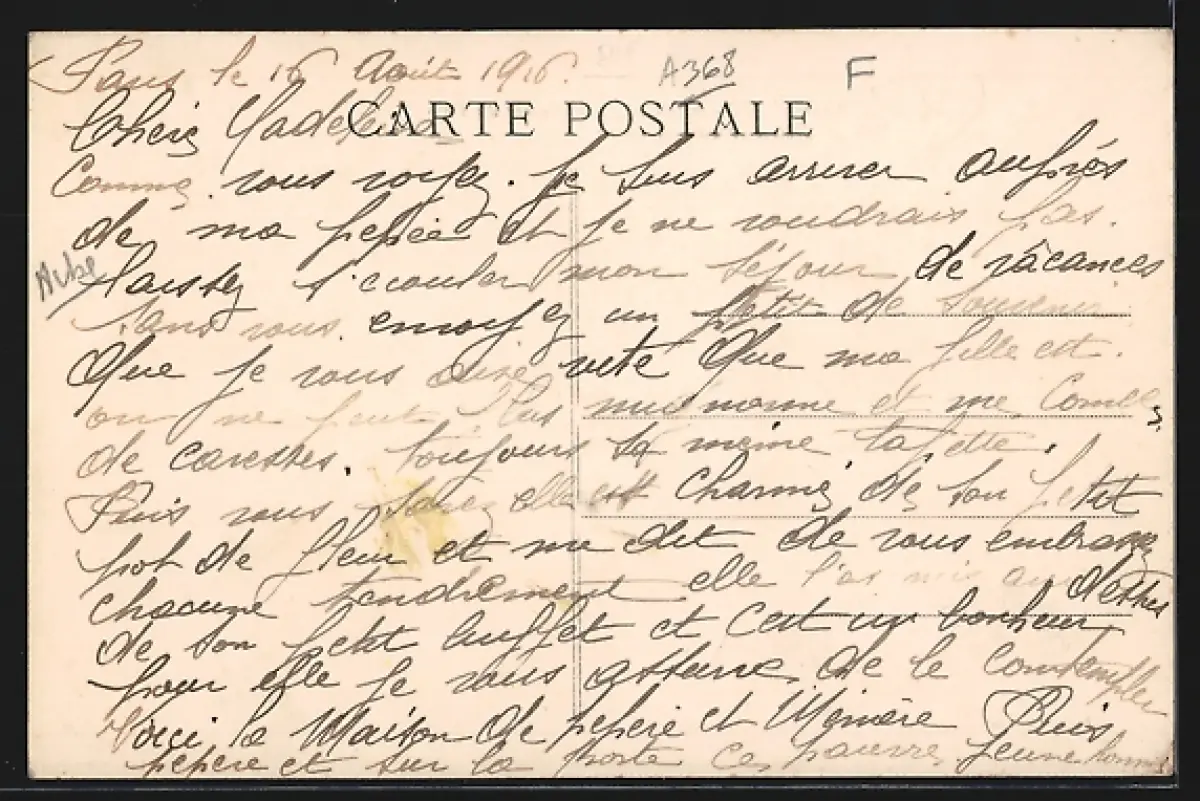 Paris le 16 Août 1916.
A368
F
CARTE POSTALE
Chère Madeleine
Comme vous voyez. je suis arriver auprès
de ma pepée et je ne voudrais pas.
laissez s'écouler mon séjour de vâcances
sans vous envoyez un petit de souvenir
Que je vous dise vite Que ma fille est.
on ne peut plus mimonne et me Comble
de caresses. toujours sa meine tapette.
Puis vous savez elle est charmé de son petit
pot de fleur et me dit de vous embrassez
chacune tendrement elle l'as mis au dessus
de son petit buffet et C'est un bonheur
pour elle je vous assure de le Contempler
Voici la Maison de pepere et Mémère Puis
pepere et sur la porte Ce pauvre jeune homme